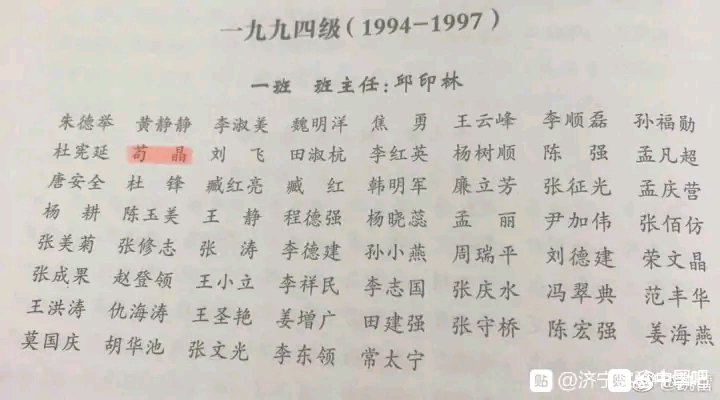 一九九四级(1994-1997)
一班 班主任:邱印林
朱德举 黄静静 李淑美 魏明洋 焦 勇 王云峰 李顺磊 孙福勋
杜宪延 苟 晶 刘 飞 田淑杭 李红英 杨树顺 陈 强 孟凡超
唐安全 杜 锋 臧红亮 臧 红 韩明军 廉立芳 张征光 孟庆营
杨 耕 陈玉美 王 静 程德强 杨晓蕊 孟 丽 尹加伟 张佰仿
张美菊 张修志 张 涛 李德建 孙小燕 周瑞平 刘德建 荣文晶
张成果 赵登领 王小立 李祥民 李志国 张庆水 冯翠典 范丰华
王洪涛 仇海涛 王圣艳 姜增广 田建强 张守桥 陈宏强 姜海燕
莫国庆 胡华池 张文光 李东领 常太宁
贴 @济宁 贴 中国吧